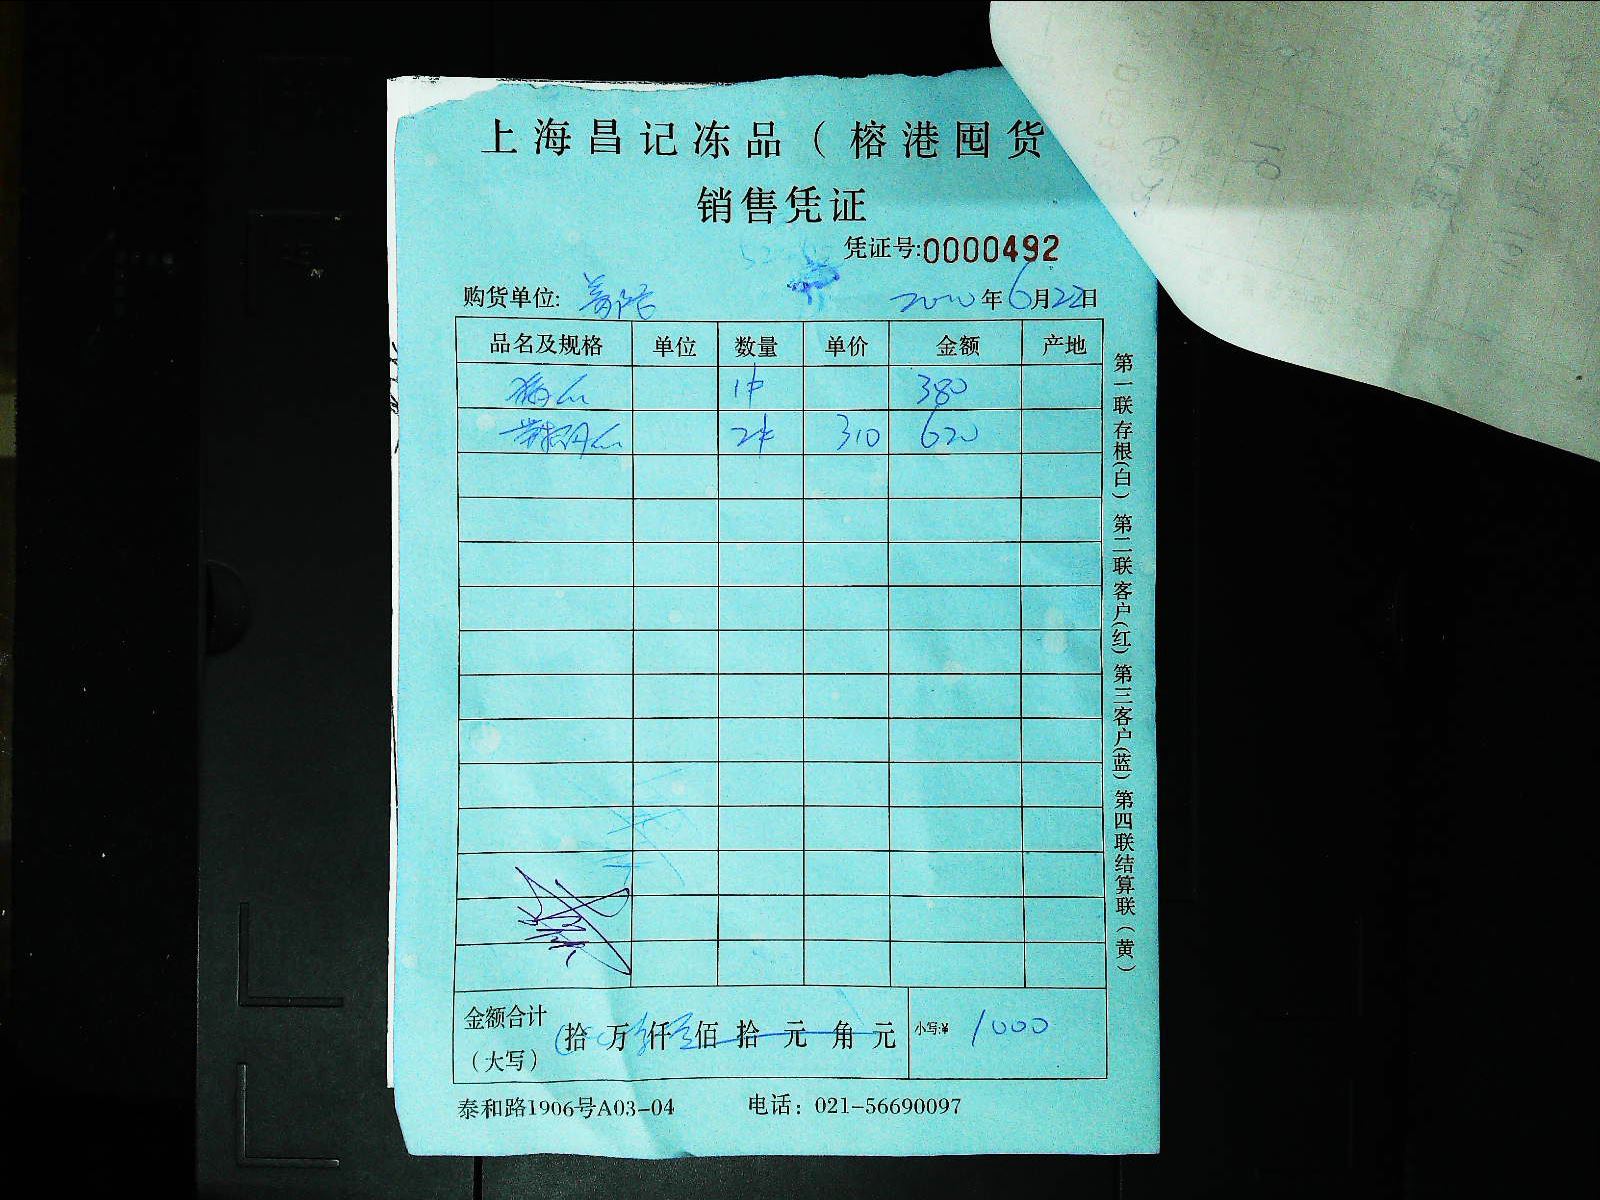 上海昌记冻品（榕港囤货
销售凭证
凭证号:0000492
购货单位: 2020年6月22日
品名及规格 单位 数量 单价 金额 产地
1件 380
2件 310 620
金额合计（大写） 拾 万 仟 佰 拾 元 角 元 小写:¥ 1000
泰和路1906号A03-04 电话：021-56690097
第一联存根(白) 第二联客户(红) 第三客户(蓝) 第四联结算联(黄)